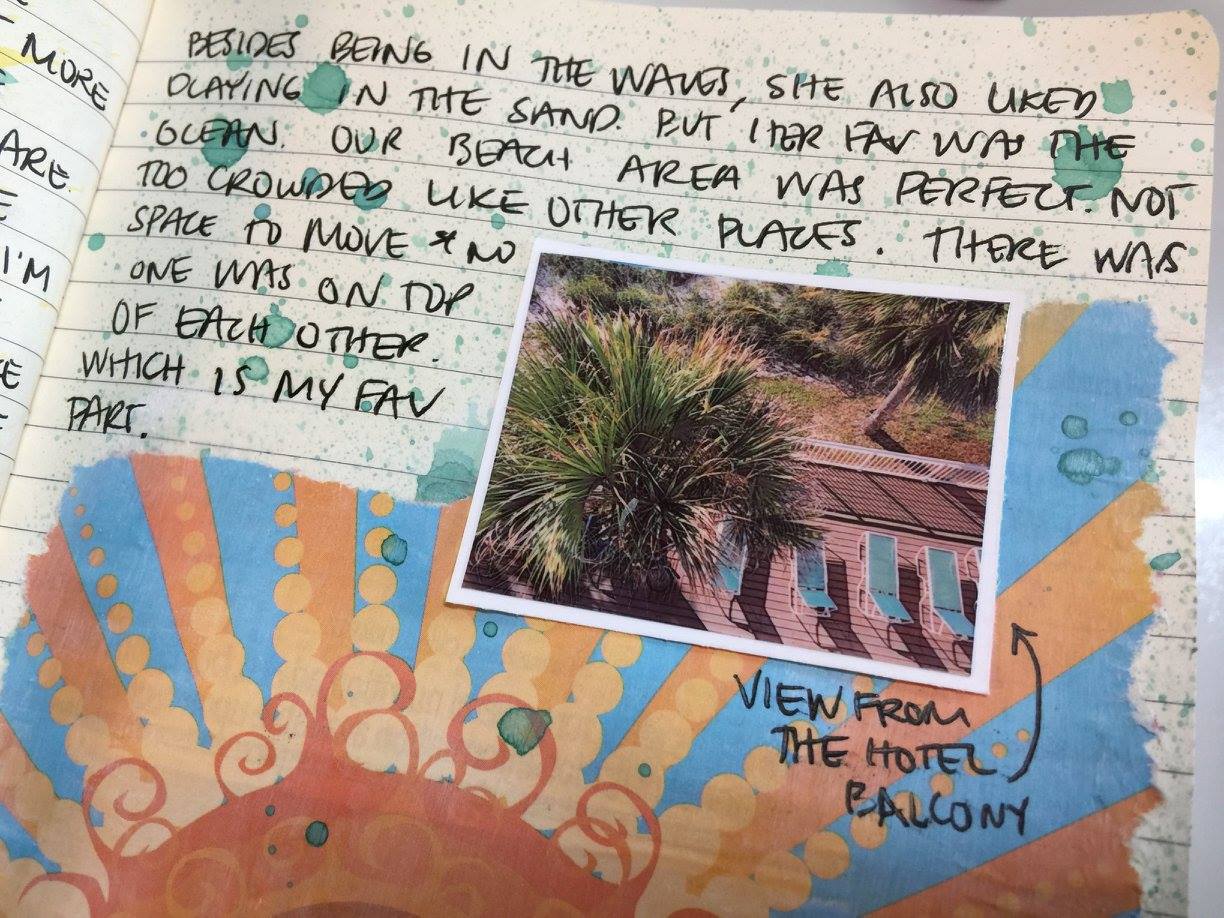 MORE
ARE
E
I'M
E
BESIDES BEING IN THE WAVES, SHE ALSO LIKED
PLAYING IN THE SAND. BUT HER FAV WAS THE
OCEAN. OUR BEACH AREA WAS PERFECT. NOT
TOO CROWDED LIKE OTHER PLACES. THERE WAS
SPACE TO MOVE * NO
ONE WAS ON TOP
OF EACH OTHER.
WHICH IS MY FAV
PART.
VIEW FROM
THE HOTEL
BALCONY